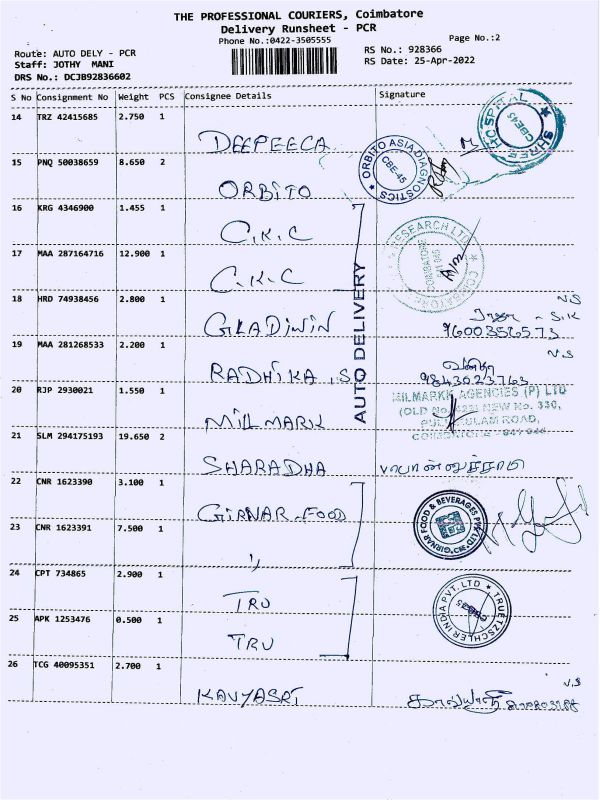 THE PROFESSIONAL COURIERS, Coimbatore
Delivery Runsheet - PCR
Phone No.:0422-3505555
Page No.:2
Route: AUTO DELY - PCR
Staff: JOTHY MANI
DRS No.: DCJB92836602
RS No.: 928366
RS Date: 25-Apr-2022
S No Consignment No Weight PCS Consignee Details Signature
14 TRZ 42415685 2.750 1
DEEPEECA
SHREE HOSPITAL
CBE45
15 PNQ 50038659 8.650 2
ORBITO
ORBITO ASIA DIAGNOSTICS
CBE-45
16 KRG 4346900 1.455 1
C.K.C
RESEARCH LTD
COIMBATORE
17 MAA 287164716 12.900 1
C.K.C
18 HRD 74938456 2.800 1
GLADIWIN
V.S
ராஜா - S.K
9600356573
19 MAA 281268533 2.200 1
RADHIKA .S
V.S
வனிதா
9843023763
AUTO DELIVERY
20 RJP 2930021 1.550 1
MILMARK
MILMARKK AGENCIES (P) LTD
NEW No. 330,
ROAD,
21 SLM 294175193 19.650 2
SHARADHA
22 CNR 1623390 3.100 1
GIRNAR.FOOD
GIRNAR FOOD & BEVERAGES PVT. LTD.
23 CNR 1623391 7.500 1
"
24 CPT 734865 2.900 1
TRU
TRUETZSCHLER INDIA PVT. LTD
25 APK 1253476 0.500 1
TRU
26 TCG 40095351 2.700 1
KAVYASRI
V.S